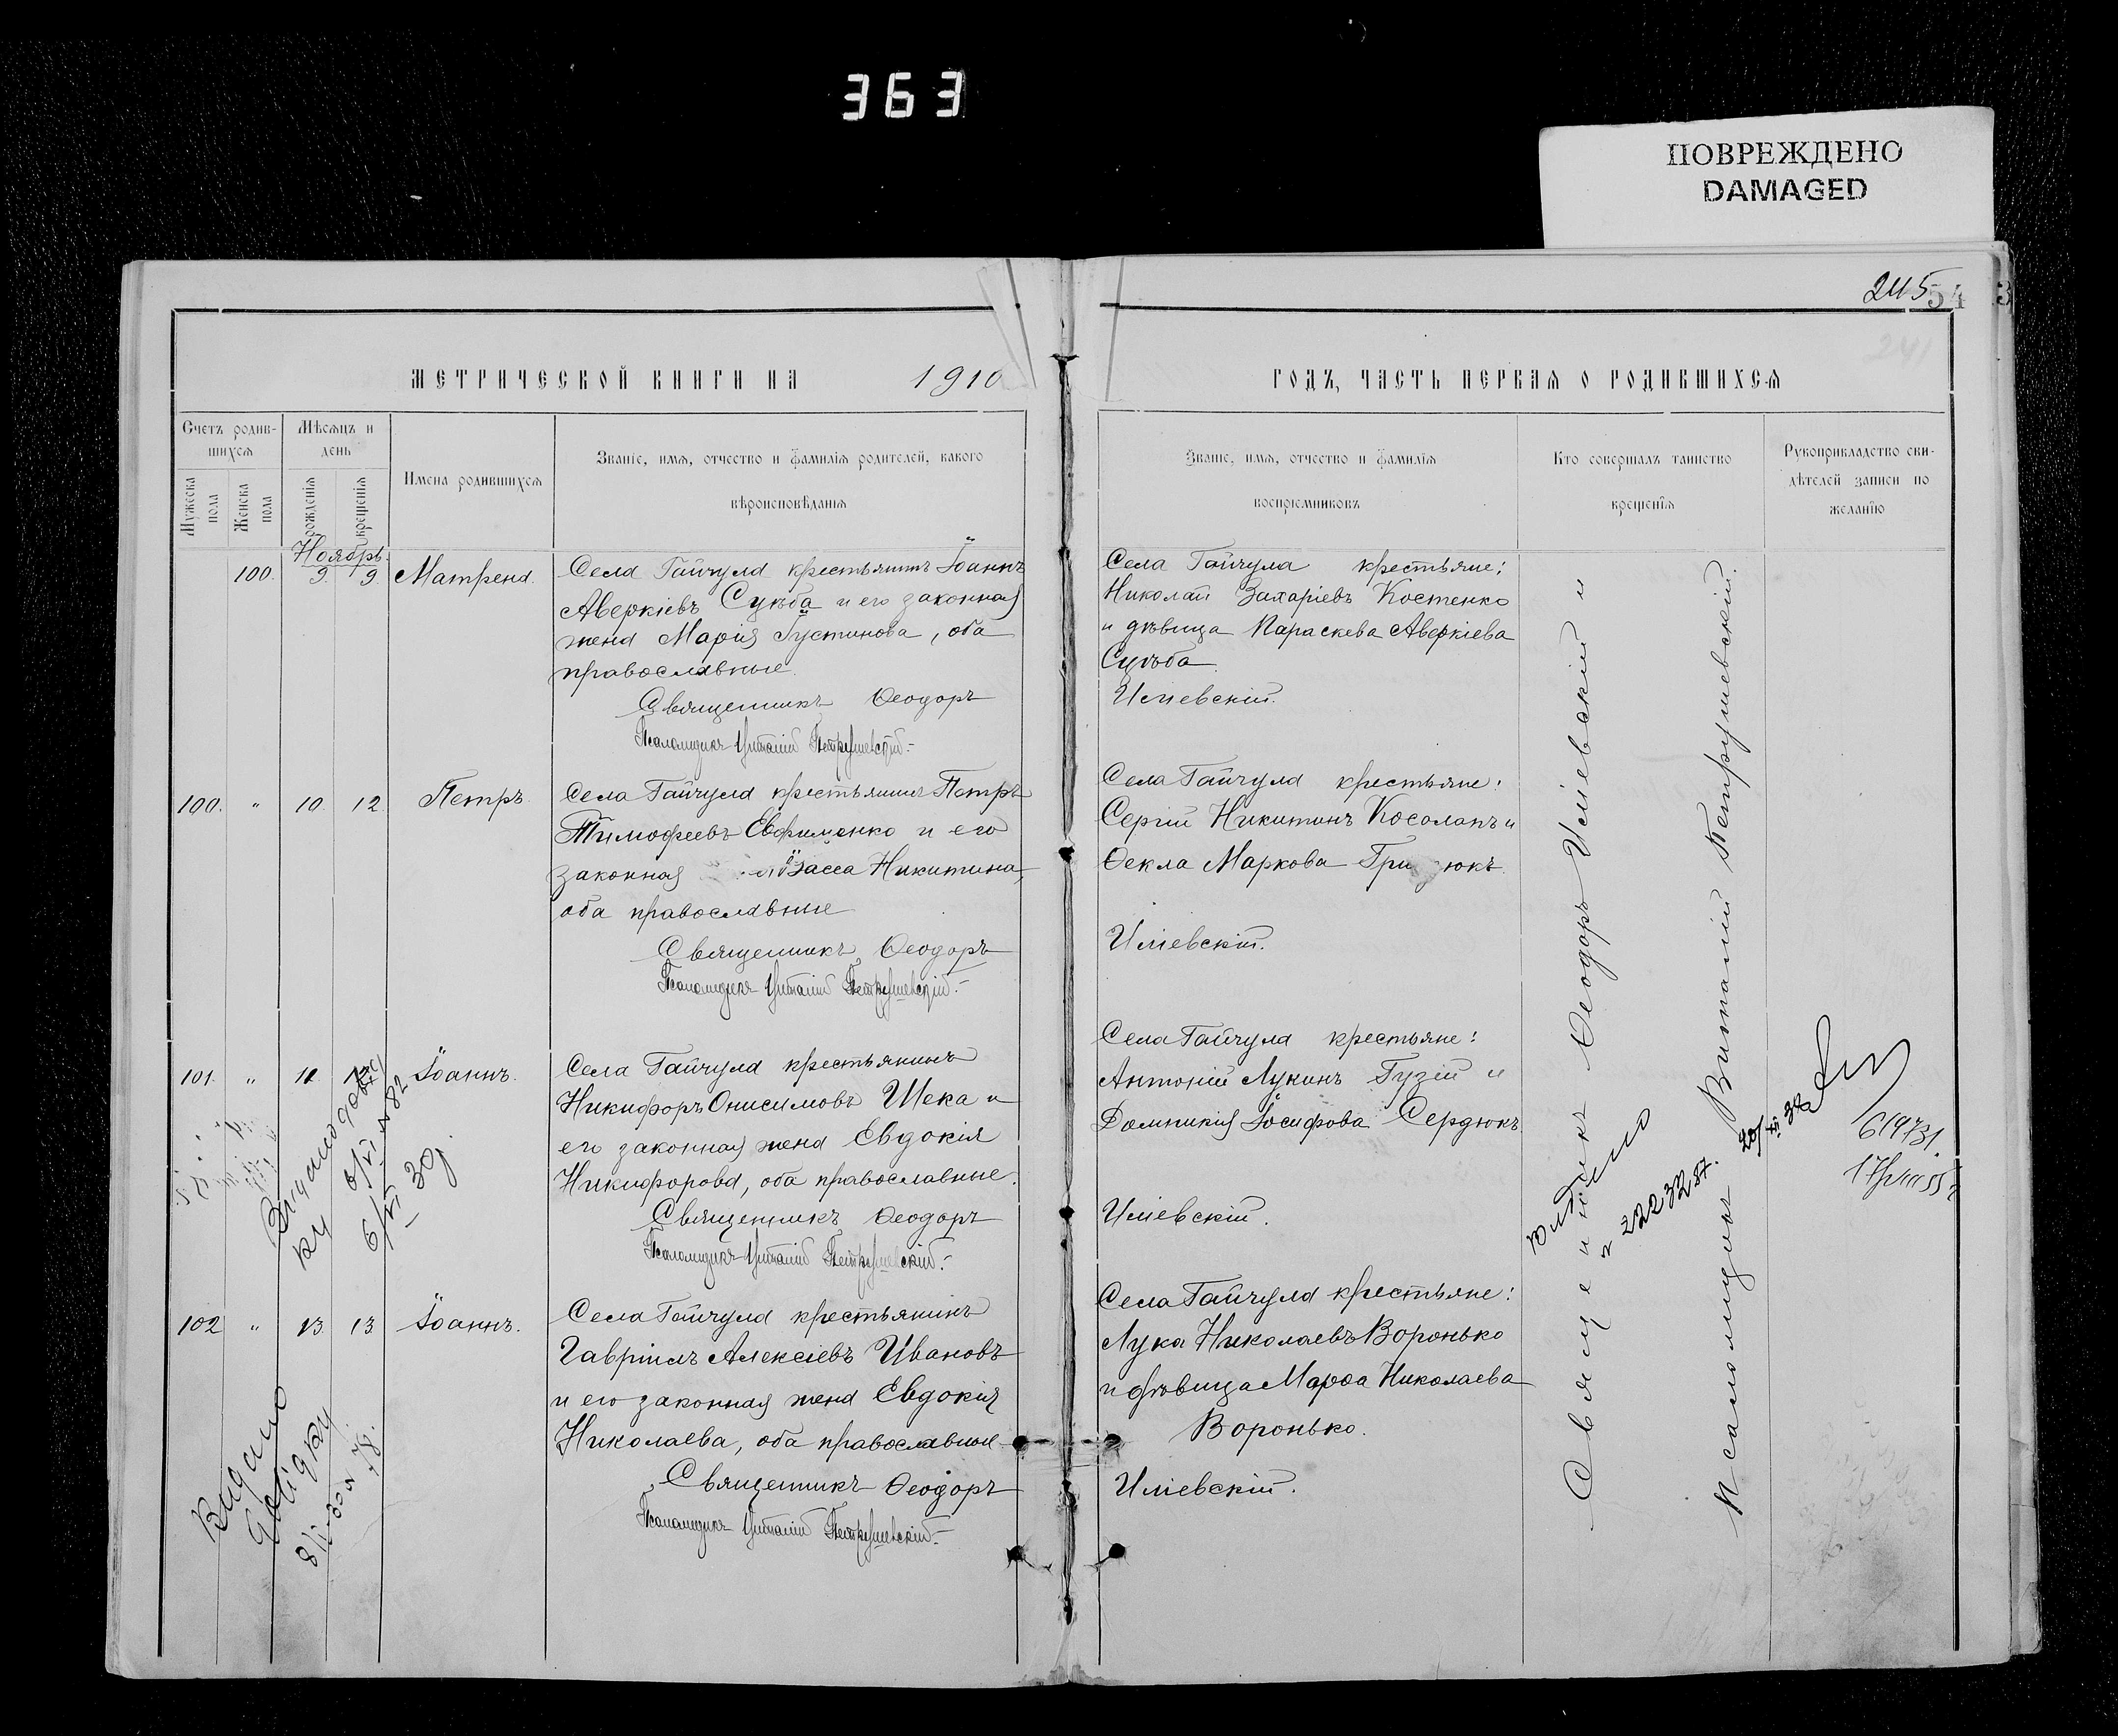 363
ПОВРЕЖДЕНО
DAMAGED
245
54
3
241
МЕТРИЧЕСКОЙ КНИГИ НА 1910
ГОДЪ, ЧАСТЬ ПЕРВАЯ О РОДИВШИХСЯ
Счетъ родив-
шихся
Мужеска
пола
Женска
пола
Мѣсяцъ и
день
рожденія
крещенія
Имена родившихся
Званіе, имя, отчество и фамилія родителей, какого
вѣроисповѣданія
Званіе, имя, отчество и фамилія
воспріемниковъ
Кто совершалъ таинство
крещенія
Рукоприкладство сви-
дѣтелей записи по
желанію
Ноябрь
100. 9. 9. Матрена.
Села Гайчула крестьянинъ Іоаннъ
Аверкіевъ Судьба и его законная
жена Марія Іустинова, оба
православные.
Священникъ Ѳеодоръ
Псаломщикъ Виталій Петрушевскій.
Села Гайчула крестьяне:
Николай Захаріевъ Костенко
и дѣвица Параскева Аверкіева
Судьба.
Иліевскій.
100. " 10. 12. Петръ.
Села Гайчула крестьянинъ Петръ
Тимоѳеевъ Евфименко и его
законная Васса Никитина,
оба православные
Священникъ Ѳеодоръ
Псаломщикъ Виталій Петрушевскій.
Села Гайчула крестьяне:
Сергій Никитинъ Косолапъ и
Ѳекла Маркова
Иліевскій.
101. " 11. Іоаннъ.
Села Гайчула крестьянинъ
Никифоръ Онисимовъ Шека и
его законная жена Евдокія
Никифорова, оба православные.
Священникъ Ѳеодоръ
Псаломщикъ Виталій Петрушевскій.
Села Гайчула крестьяне:
Антоній Лукинъ Гузій и
Домникія Іосифова Сердюкъ
Иліевскій.
102 " 13. 13. Іоаннъ.
Села Гайчула крестьянинъ
Гавріилъ Алексіевъ Ивановъ
и его законная жена Евдокія
Николаева, оба православные
Священникъ Ѳеодоръ
Псаломщикъ Виталій Петрушевскій.
Села Гайчула крестьяне:
Лука Николаевъ Воронько
и дѣвица Марѳа Николаева
Воронько.
Иліевскій.
Священникъ Ѳеодоръ Иліевскій и
Псаломщикъ Виталій Петрушевскій.
Видано довід
ку 6/VI № 82
6/VI 30
Видано
довідку
8/I-30 № 78.
619731